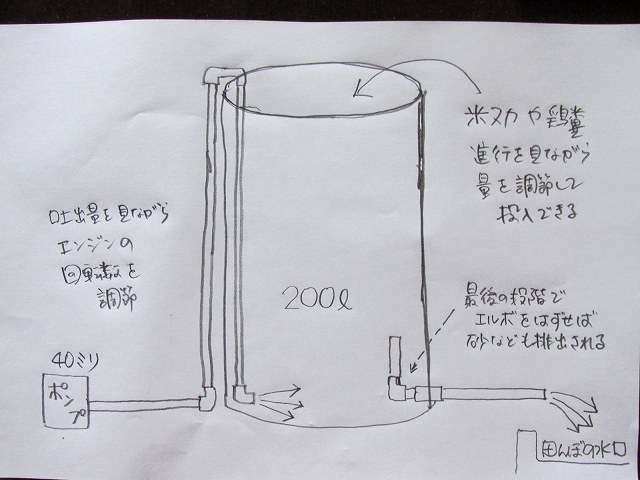 米ヌカや鶏糞
進行を見ながら
量を調節して
投入できる
吐出量を見ながら
エンジンの
回転数を
調節
200ℓ
最後の段階で
エルボをはずせば
砂なども排出される
40ミリ
ポンプ
田んぼの水口